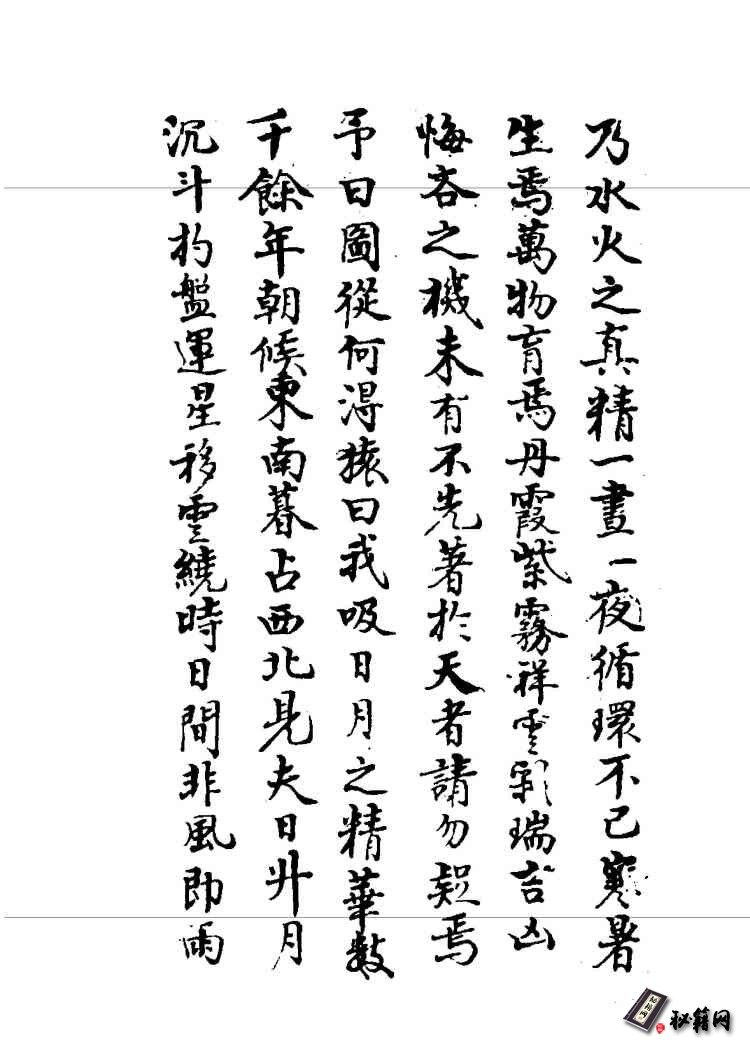 乃水火之真精一晝一夜循環不已寒暑
生焉萬物育焉丹霞紫霧祥雲彩瑞吉凶
悔吝之機未有不先著於天者請勿疑焉
予曰圖從何淂猿曰我吸日月之精華數
千餘年朝候東南暮占西北見夫日升月
沉斗杓盤運星移雲繞時日間非風即雨
秘籍网